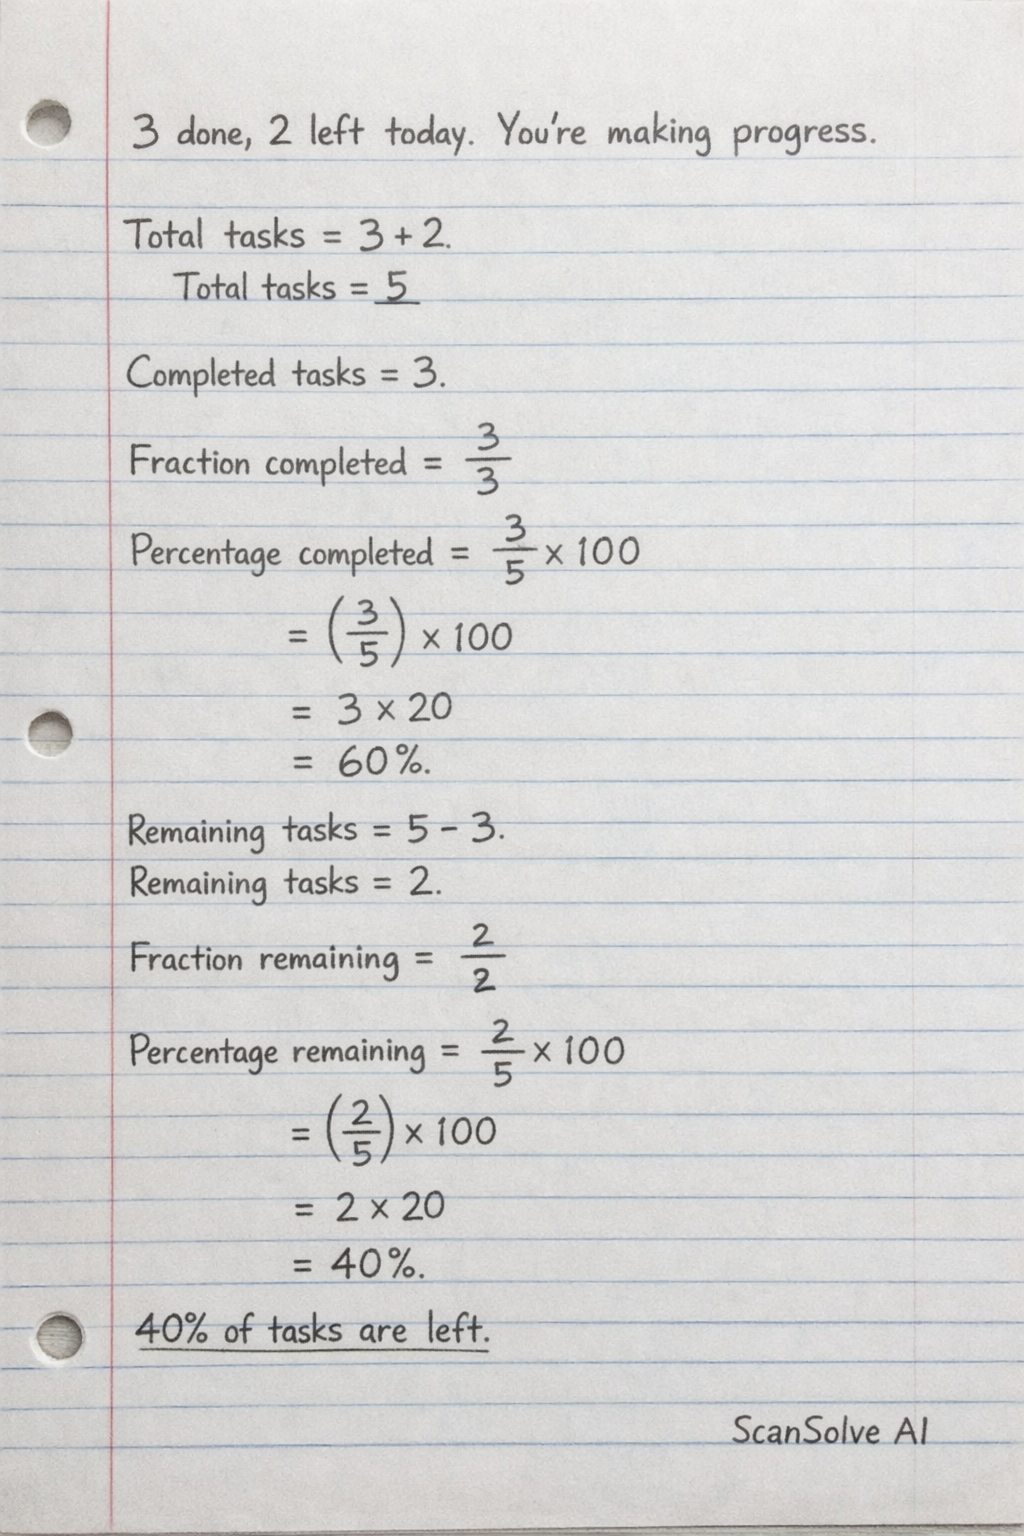 3 done, 2 left today. You're making progress.
Total tasks = 3 + 2.
Total tasks = 5
Completed tasks = 3.
Fraction completed = 3/3
Percentage completed = 3/5 × 100
= (3/5) × 100
= 3 × 20
= 60%.
Remaining tasks = 5 - 3.
Remaining tasks = 2.
Fraction remaining = 2/2
Percentage remaining = 2/5 × 100
= (2/5) × 100
= 2 × 20
= 40%.
40% of tasks are left.
ScanSolve AI